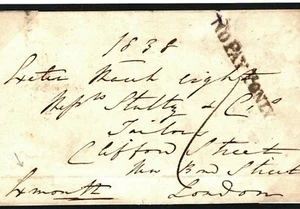 1838
Exeter March eight
Messrs Stultz & Co
Tailors
Clifford Street
New Bond Street
London
Exmouth
TO PAY 1D ONLY